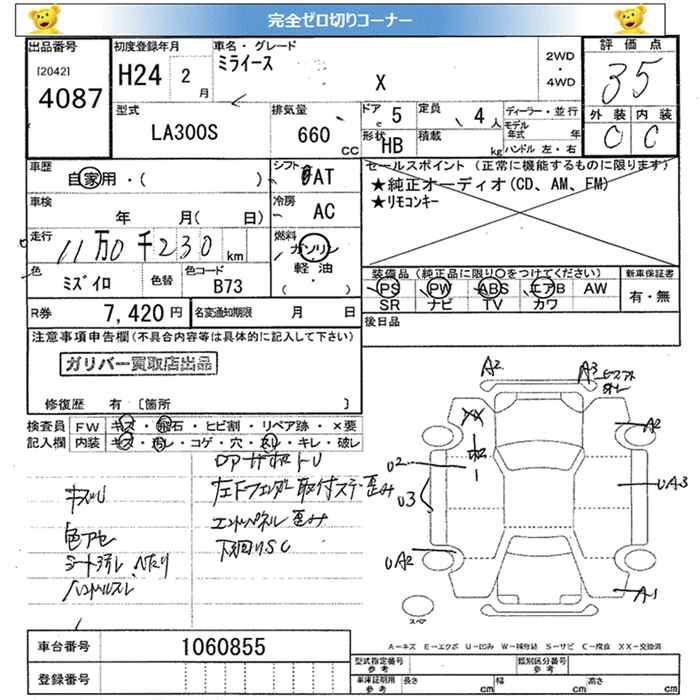 完全ゼロ切りコーナー
出品番号
[2042]
4087
初度登録年月
H24 2
月
車名・グレード
ミライース
X
2WD
・
4WD
評価点
35
外装 内装
C C
型式
LA300S
排気量
660
CC
ドア 5
定員 4 人
形状 HB
積載
kg
ディーラー・並行
モデル年式 年
ハンドル 左・右
車歴
自家用・( )
シフト
AT
セールスポイント (正常に機能するものに限ります)
★純正オーディオ(CD、AM、FM)
★リモコンキー
車検
年 月( 日)
冷房
AC
走行
11万0千230 km
燃料
ガソリン
軽油
( ・ )
色
ミズイロ
色替
色コード
B73
装備品 (純正品に限り○をつけてください)
PS PW ABS エアB AW
SR ナビ TV カワ
新車保証書
有・無
R券
7,420 円
名変通知期限 月 日
後日品
注意事項申告欄(不具合内容等は具体的に記入して下さい)
ガリバー買取店出品
修復歴 有 〔箇所 〕
検査員
記入欄
FW キズ・飛石・ヒビ割・リペア跡・×要
内装 キズ・汚レ・コゲ・穴・スレ・キレ・破レ
キズU
色アセ
シート汚レ、ヘタリ
ハンドルスレ
左Fフェンダー取付ステー歪み
エンドパネル歪み
下回りSC
A2
A3
XX
A2
U2
U3
UA3
UA2
A1
スペア
A-キズ E-エクボ U-凹み W-補修跡 S-サビ C-腐食 XX-交換済
車台番号
1060855
登録番号
型式指定番号
参考
類別区分番号
参考
車庫証明用
参考
長さ cm
幅 cm
高さ cm